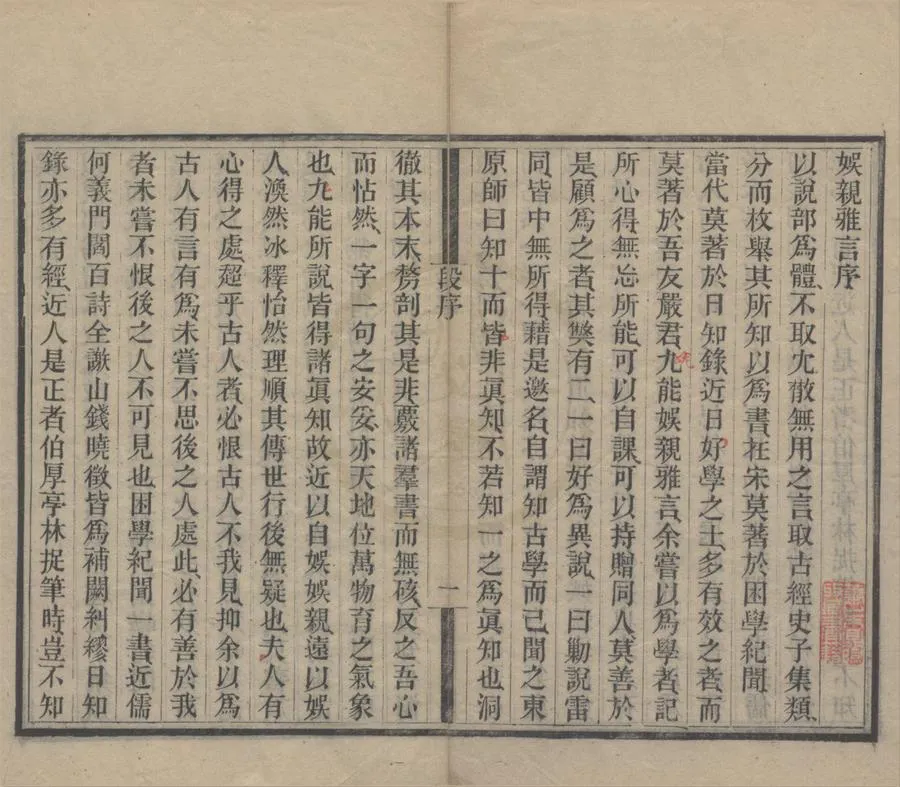 娛親雅言序
以說部爲體不取冘散無用之言取古經史子集類
分而枚舉其所知以爲書在宋莫著於困學紀聞
當代莫著於日知錄近日好學之士多有效之者而
莫著於吾友嚴君九能娛親雅言余嘗以爲學者記
所心得無忘所能可以自課可以持贈同人莫善於
是顧爲之者其獘有二一曰好爲異說一曰勦說雷
同皆中無所得藉是邀名自謂知古學而已聞之東
原師曰知十而皆非眞知不若知一之爲眞知也洞
段序
一
徹其本末剺剖其是非覈諸羣書而無礙反之吾心
而怗然一字一句之安妥亦天地位萬物育之氣象
也九能所說皆得諸眞知故近以自娛娛親遠以娛
人渙然冰釋怡然理順其傳世行後無疑也夫人有
心得之處超乎古人者必恨古人不我見抑余以爲
古人有言有爲未嘗不思後之人處此必有善於我
者未嘗不恨後之人不可見也困學紀聞一書近儒
何義門閻百詩全謝山錢曉徵皆爲補闕糾繆日知
錄亦多有經近人是正者伯厚亭林捉筆時豈不知